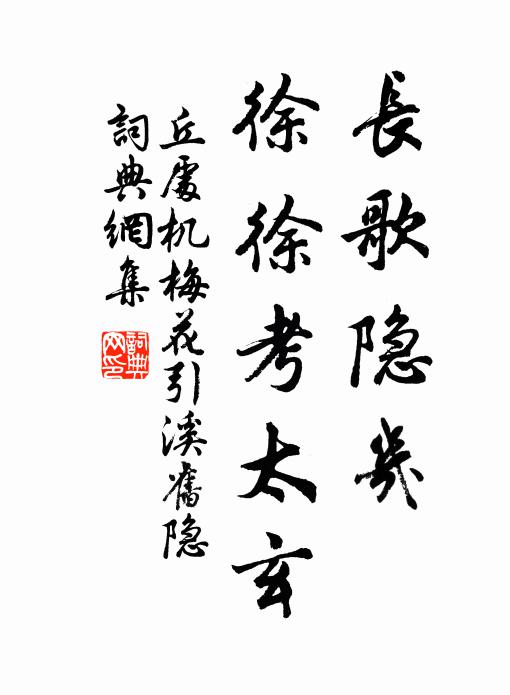 長歌隐幾
徐徐考太玄
丘處机梅花引溪舊隐
詞典網集
詞典网印